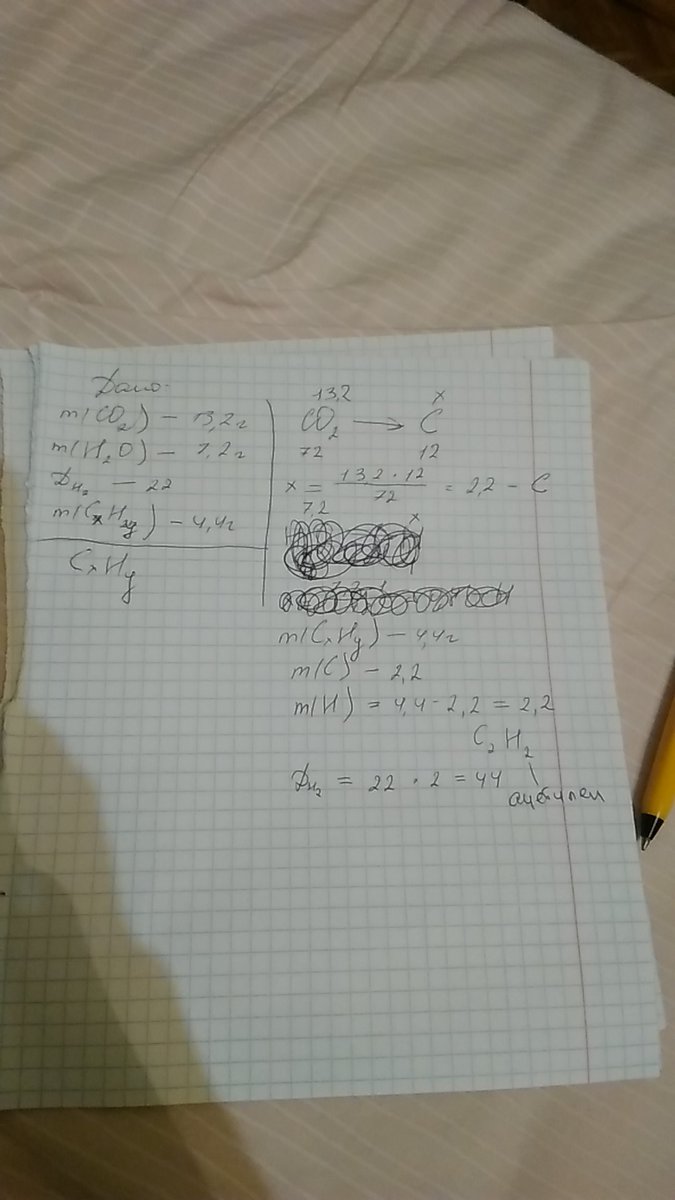 Дано:
m(CO₂) – 13,2г
m(H₂O) – 7,2г
Dн₂ – 22
m(CₓHy) – 4,4г
CₓHy
13,2 x
CO₂ → C
72 12
x = 13,2 · 12 / 72 = 2,2 – C
7,2 x
m(CₓHy) – 4,4г
m(C) – 2,2
m(H) = 4,4 - 2,2 = 2,2
C₂H₂
Dн₂ = 22 · 2 = 44
ацетилен